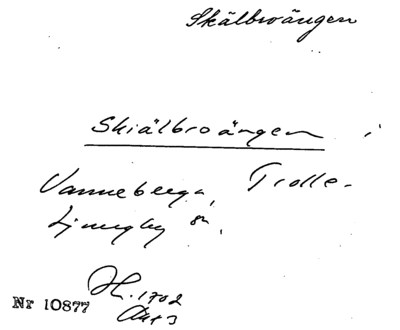 Skälbroängen
Skiälbroängen i
Vanneberga, Trolle-
Ljungby sn.
H. 1702
Akt 3
Nr 10877